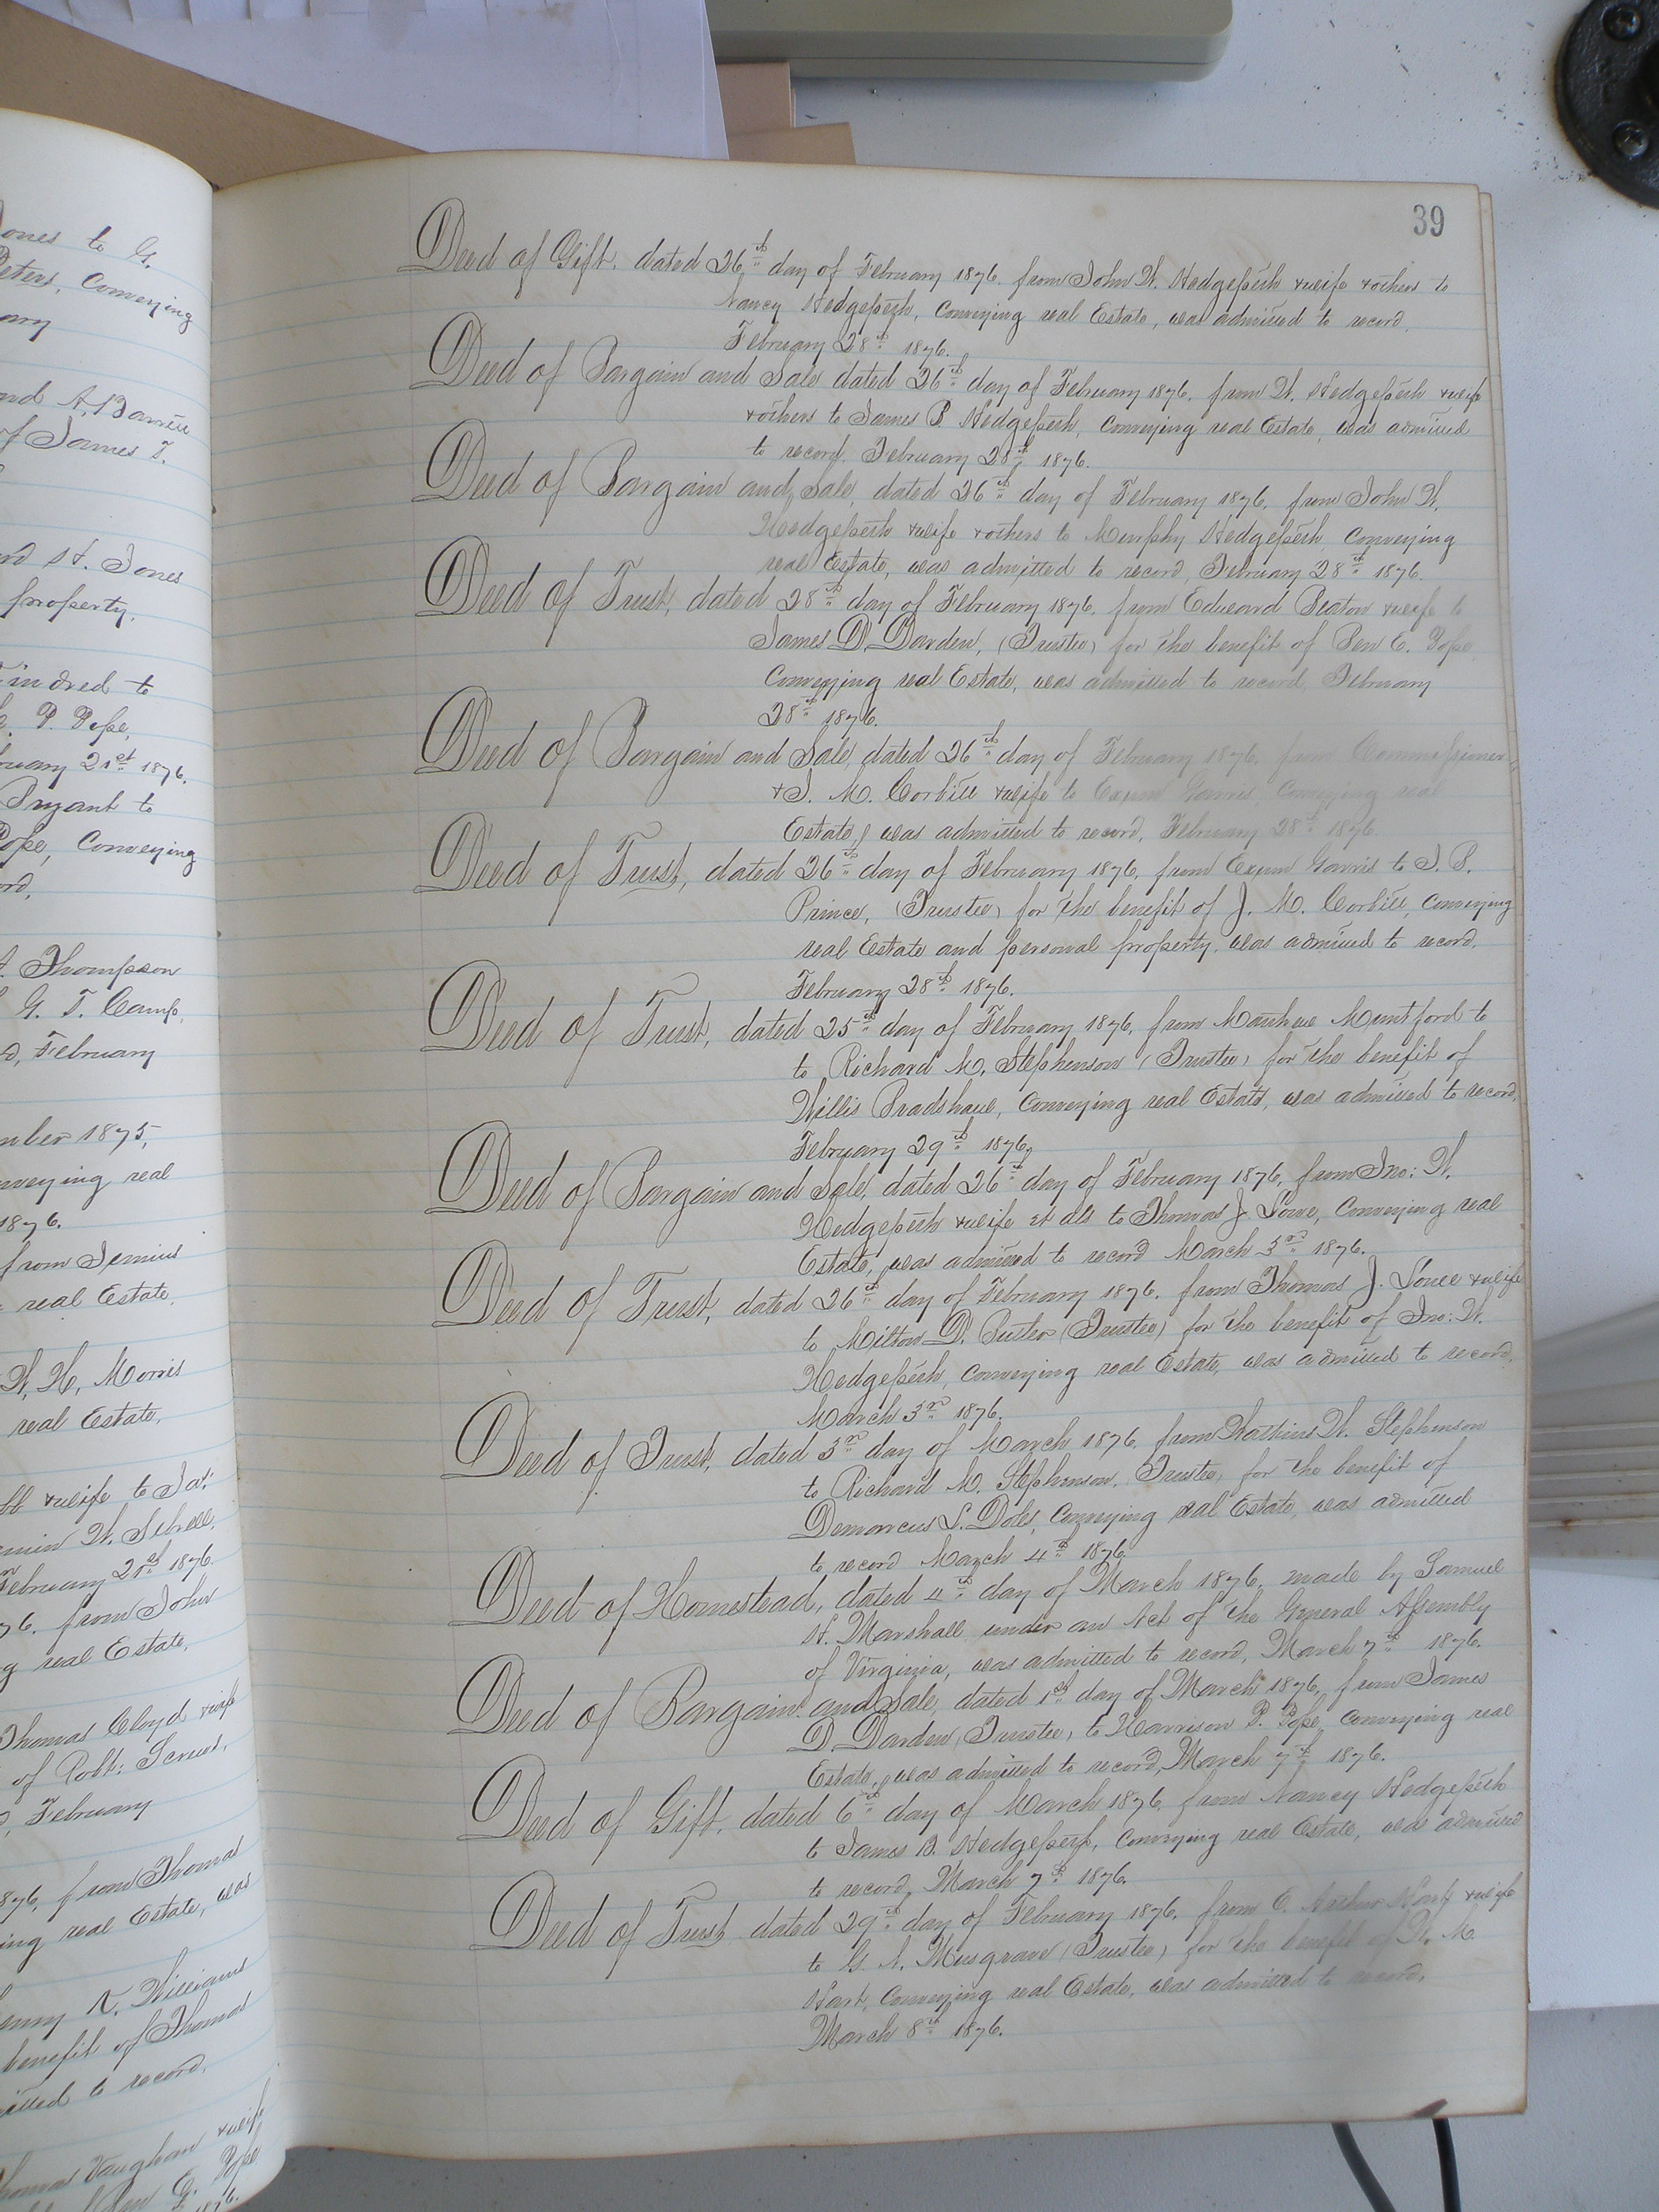 ones to G.
Peters, Conveying
nd A. Barrett
of James T.
rd H. Jones
property.
indred to
P. Pope,
ruary 21st 1876.
Bryant to
Pope, Conveying
ord,
Thompson
G. T. Camp,
d, February
mber 1875,
nveying real
1876.
from Junius
real Estate,
W, H, Morris
real Estate,
&wife to Jas:
min W. Sebrell,
February 21st 1876.
76. from John
g real Estate,
Thomas Cloyd &wife
of Robt:
d, February
876, from Thomas
ing real Estate, was
enry N. Williams
benefit of Thomas
itted to record,
homas Vaughan &wife
Ben E. Pope
1876.
39
Deed of Gift, dated 26th day of February 1876. from John W. Hedgepeth &wife &others to
Nancy Hedgepeth, Conveying real Estate, was admitted to record,
February 28th 1876.
Deed of Bargain and Sale dated 26th day of February 1876, from W. Hedgepeth &wife
&others to James B. Hedgepeth, Conveying real Estate, was admitted
to record. February 28th 1876.
Deed of Bargain and Sale, dated 26th day of February 1876, from John W.
Hedgepeth &wife &others to Murphy Hedgepeth, Conveying
real Estate, was admitted to record, February 28th 1876.
Deed of Trust, dated 28th day of February 1876, from Edward Beaton &wife to
James D. Darden, (Trustee) for the benefit of Ben E. Pope,
Conveying real Estate, was admitted to record, February
28th 1876.
Deed of Bargain and Sale, dated 26th day of February 1876, from Commissioner
&J. M. Corbitt &wife to Exum Garris, Conveying real
Estate, was admitted to record, February 28th 1876.
Deed of Trust, dated 26th day of February 1876, from Exum Garris to J. B.
Prince, (Trustee) for the benefit of J. M. Corbitt, Conveying
real Estate and personal property, was admitted to record.
February 28th 1876.
Deed of Trust, dated 25th day of February 1876, from Matthew Muntford to
to Richard M. Stephenson (Trustee) for the benefit of
Willis Bradshaw, Conveying real Estate, was admitted to record,
February 29th 1876,
Deed of Bargain and Sale, dated 26th day of February 1876, from Jno: W.
Hedgepeth &wife et als to Thomas J. Lowe, Conveying real
Estate, was admitted to record March 3rd 1876.
Deed of Trust, dated 26th day of February 1876, from Thomas J. Lowe &wife
to Milton D. Butler (Trustee) for the benefit of Jno: W.
Hedgepeth, Conveying real Estate, was admitted to record,
March 3rd 1876.
Deed of Trust, dated 3rd day of March 1876, from Watkins W. Stephenson
to Richard M. Stephenson, Trustee, for the benefit of
Demarcus L. Doles, Conveying real Estate, was admitted
to record March 4th 1876
Deed of Homestead, dated 4th day of March 1876, made by Samuel
H. Marshall under an Act of the General Assembly
of Virginia, was admitted to record, March 7th 1876.
Deed of Bargain and Sale, dated 1st day of March 1876, from James
D. Darden (Trustee) to Harrison P. Pope, Conveying real
Estate, was admitted to record, March 7th 1876.
Deed of Gift, dated 6th day of March 1876, from Nancy Hedgepeth
to James B. Hedgepeth, Conveying real Estate, was admitted
to record, March 7th 1876.
Deed of Trust dated 29th day of February 1876, from E. Arthur Hart &wife
to G. A. Musgrave (Trustee) for the benefit of W. M.
Hart, Conveying real Estate, was admitted to record,
March 8th 1876.